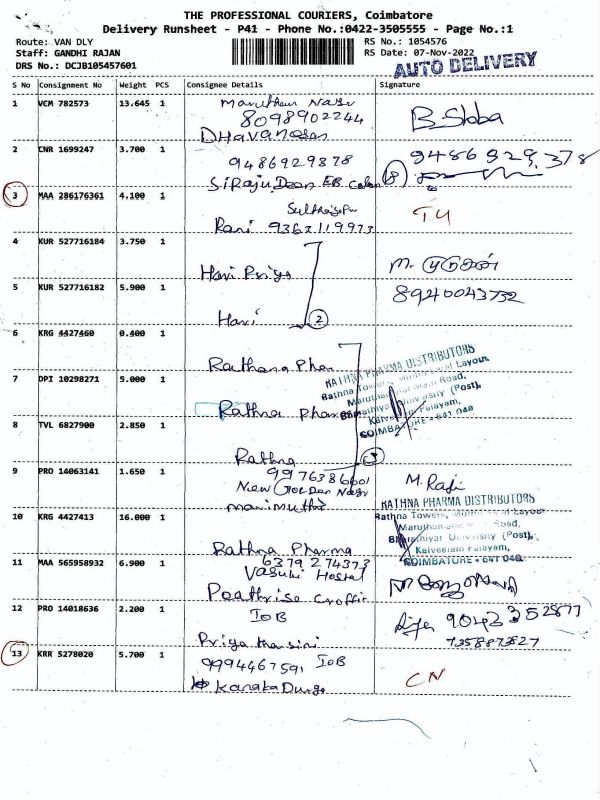 THE PROFESSIONAL COURIERS, Coimbatore
Delivery Runsheet - P41 - Phone No.:0422-3505555 - Page No.:1
Route: VAN DLY
Staff: GANDHI RAJAN
DRS No.: DCJB105457601
RS No.: 1054576
RS Date: 07-Nov-2022
AUTO DELIVERY
S No Consignment No Weight PCS Consignee Details Signature
1 VCM 782573 13.645 1
8098902244
B. Shoba
2 CNR 1699247 3.700 1
9486929878
9486 929 378
Siraju Deen EB
3 MAA 286176361 4.100 1
TU
Rani 9363119973
4 KUR 527716184 3.750 1
Hari Priya
M. முருகன்
5 KUR 527716182 5.900 1
8940043732
Hari 2
6 KRG 4427460 0.400 1
Rathana Phar
7 DPI 10298271 5.000 1
Rathna Pharma
RATHNA PHARMA DISTRIBUTORS
Rathna Towers, Layout
Maruthamalai Main Road,
Bharathiyar University (Post),
Kalveeram Palayam,
COIMBATORE - 641 046
8 TVL 6827900 2.850 1
Rathna
9 PRO 14063141 1.650 1
9976386601
New Golden Nagar
Marimuthu
M. Raji
10 KRG 4427413 16.000 1
Rathna Pharma
RATHNA PHARMA DISTRIBUTORS
Rathna Towers, Layout
Road,
Bharathiyar University (Post),
Kalveeram Palayam,
COIMBATORE - 641 046
11 MAA 565958932 6.900 1
6379274373
Vasuki Hostel
12 PRO 14018636 2.200 1
IOB
9043352877
7358873827
Priyatharsini
13 KRR 5278020 5.700 1
9994467591 IOB
Kanaka Durga
CN